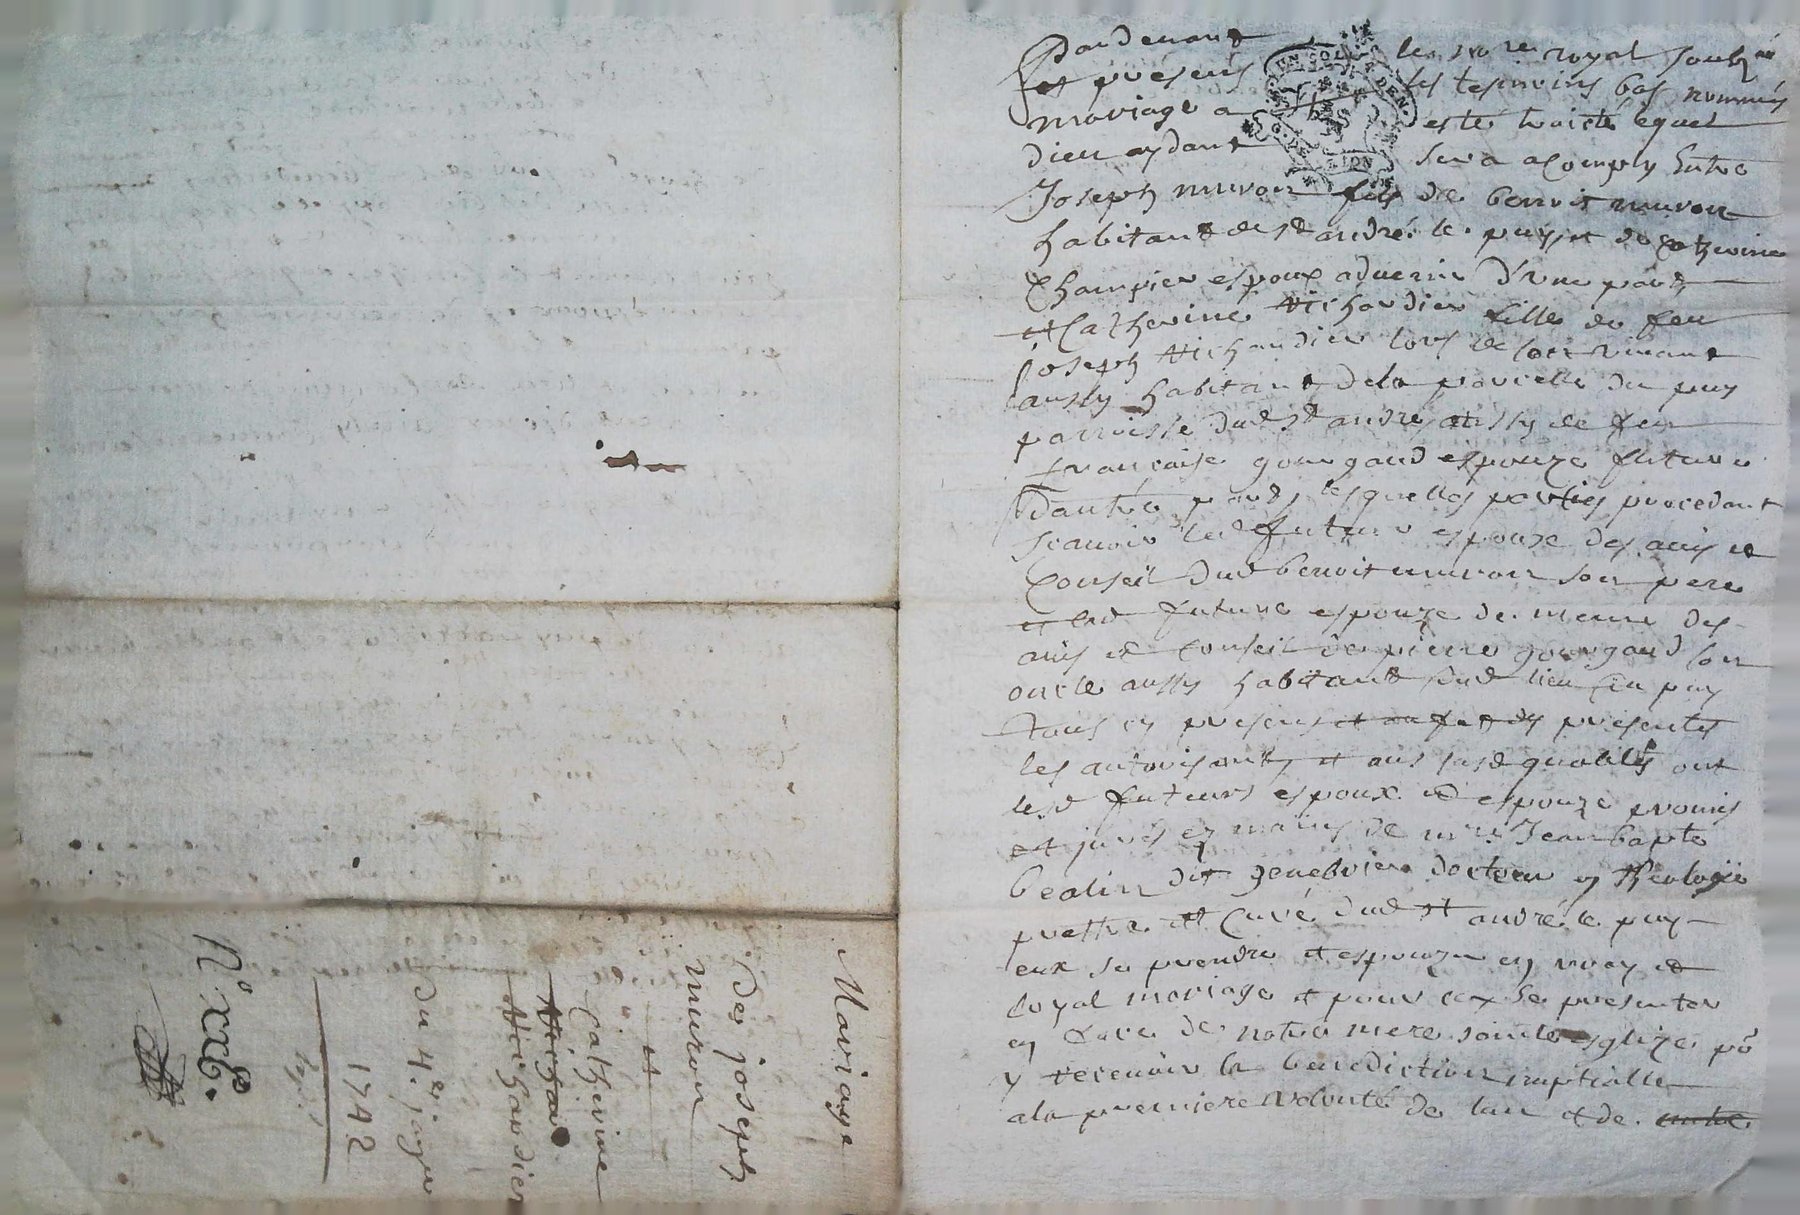 Pardevant les no.re royal soubz.né
et presens les tesmoins bas nommés
mariage a esté traicté équel
dieu aydant sera acomply Entre
Joseph muron fils de benoit muron
habitant de st andré le puy et de Catherine
Champier espoux advenir d'vne part
et Catherine Richardier fille de feu
joseph Richardier lors de son vivant
aussy habitant dela parcelle du puy
parroisse dud st andre aussy de feu
françoise gourgaud espouze future
dautre part, lesquelles parties procedant
scauoir led futur espoux des auis et
Conseil dud benoit muron son pere
et lad future espouze de meme des
auis et Conseil de pierre gourgaud son
oncle aussy habitant dud lieu du puy
tous cy presens et presentes
les autorisant, et aus susd qualités ont
lesd futurs espoux et espouze promis
et jurés ez mains de mre Jean bapte
bealin dit genebrier docteur en theologie
prettre et Curé dud st andré le puy
eux se prendre et espouzer en vray et
loyal mariage et pour ce se presenter
en face de notre mere sainte esglize po
y recevoir la benediction nuptialle
ala premiere volonté de lun et de
UN SOL DEN.
G. DE LION
Mariage
de joseph
muron
et
Catherine
Richar
Richardier
du 4.er janer
1742
No xxb.